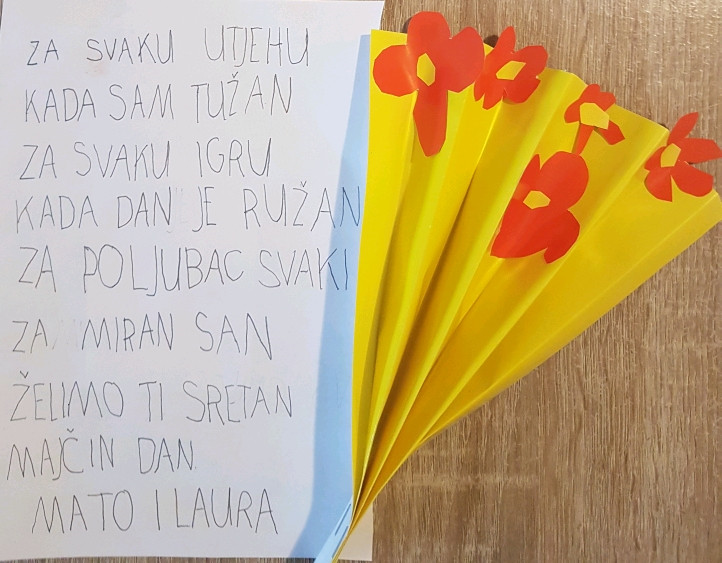 ZA SVAKU UTJEHU
KADA SAM TUŽAN
ZA SVAKU IGRU
KADA DAN JE RUŽAN
ZA POLJUBAC SVAKI
ZA MIRAN SAN
ŽELIMO TI SRETAN
MAJČIN DAN
MATO I LAURA